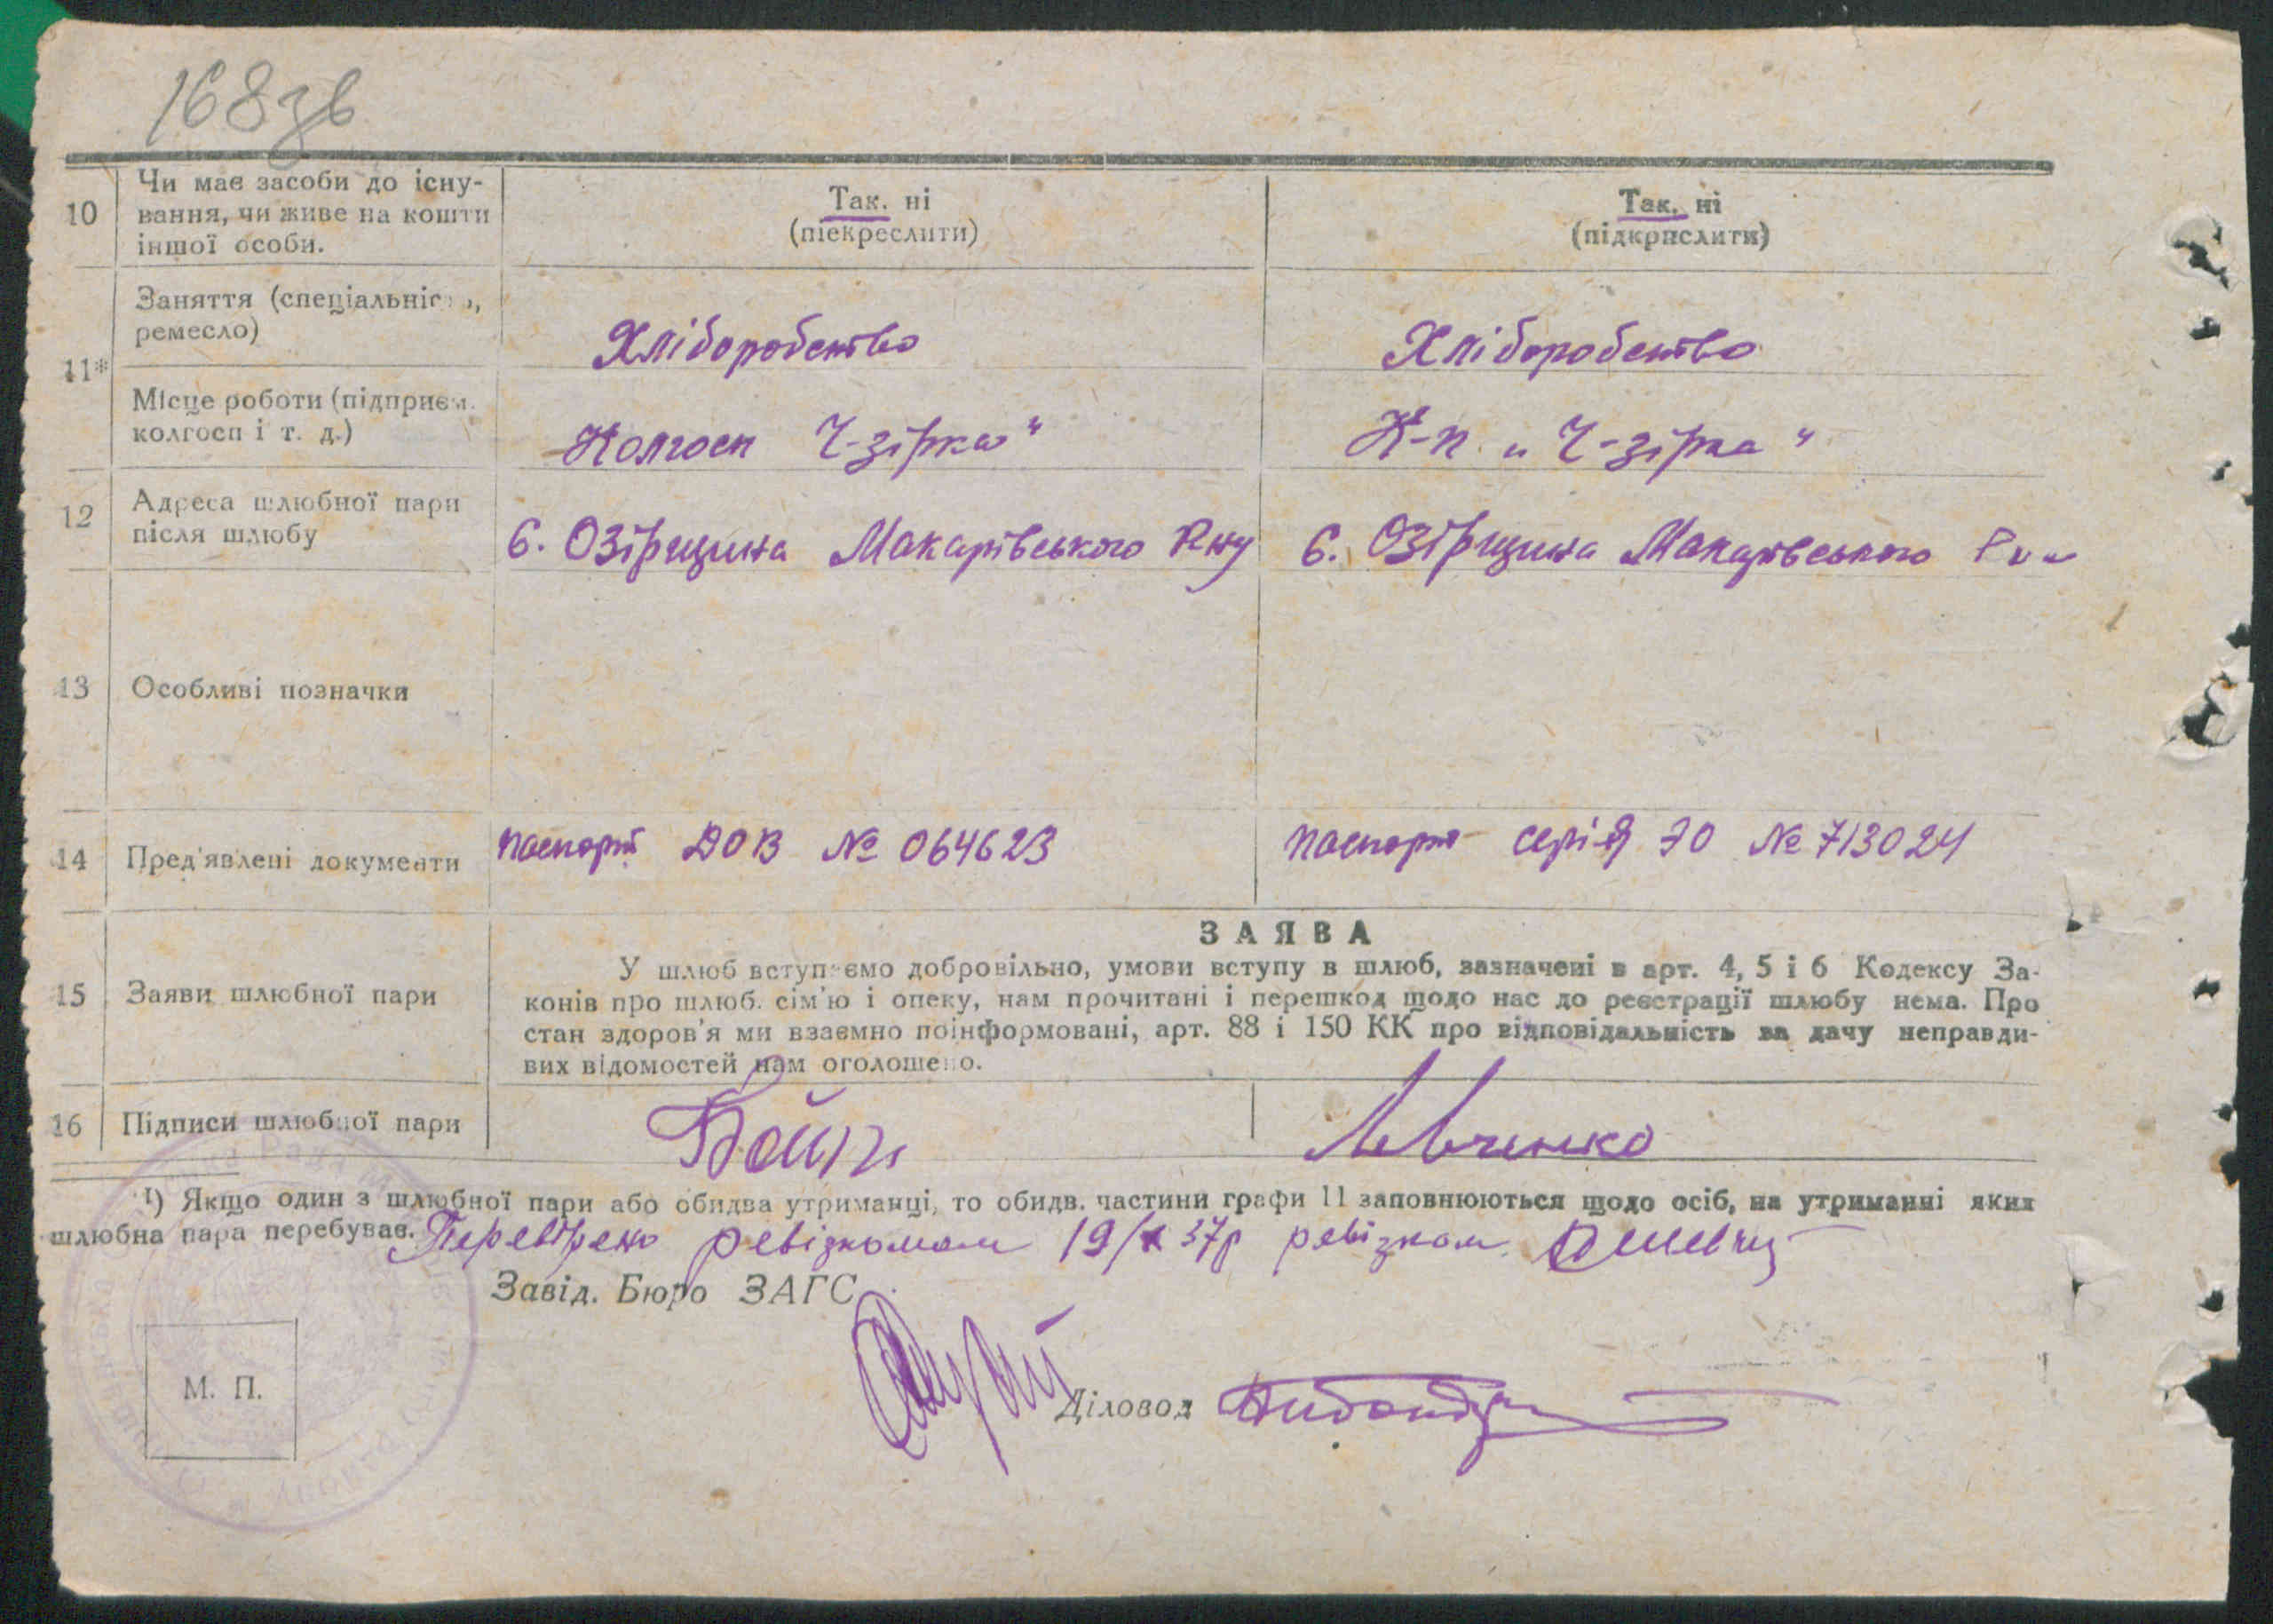 168зв
10 Чи має засоби до існу-
вання, чи живе на кошти
іншої особи.
Так. ні
(піекреслити)
Так. ні
(підкрислити)
11* Заняття (спеціальність,
ремесло)
Хліборобство
Хліборобство
Місце роботи (підприєм.
колгосп і т. д.)
Колгосп Ч-зірка"
К-п. „ Ч-зірка "
12 Адреса шлюбної пари
після шлюбу
С. Озірщина Макарівського Рну
С. Озірщина Макарівського
13 Особливі позначки
14 Пред'явлені документи
паспорт ДОВ № 064623
паспорт серія ЭО № 713024
15 Заяви шлюбної пари
ЗАЯВА
У шлюб вступаємо добровільно, умови вступу в шлюб, зазначені в арт. 4, 5 і 6 Кодексу За-
конів про шлюб. сім'ю і опеку, нам прочитані і перешкод щодо нас до реєстрації шлюбу нема. Про
стан здоров'я ми взаємно поінформовані, арт. 88 і 150 КК про відповідальність за дачу неправди-
вих відомостей нам оголошено.
16 Підписи шлюбної пари
Левченко
¹) Якщо один з шлюбної пари або обидва утриманці, то обидв. частини графи 11 заповнюються щодо осіб, на утриманні яких
шлюбна пара перебуває.
Перевірено ревізкомом 19/X 37р ревізком.
Завід. Бюро ЗАГС
М. П.
Діловод